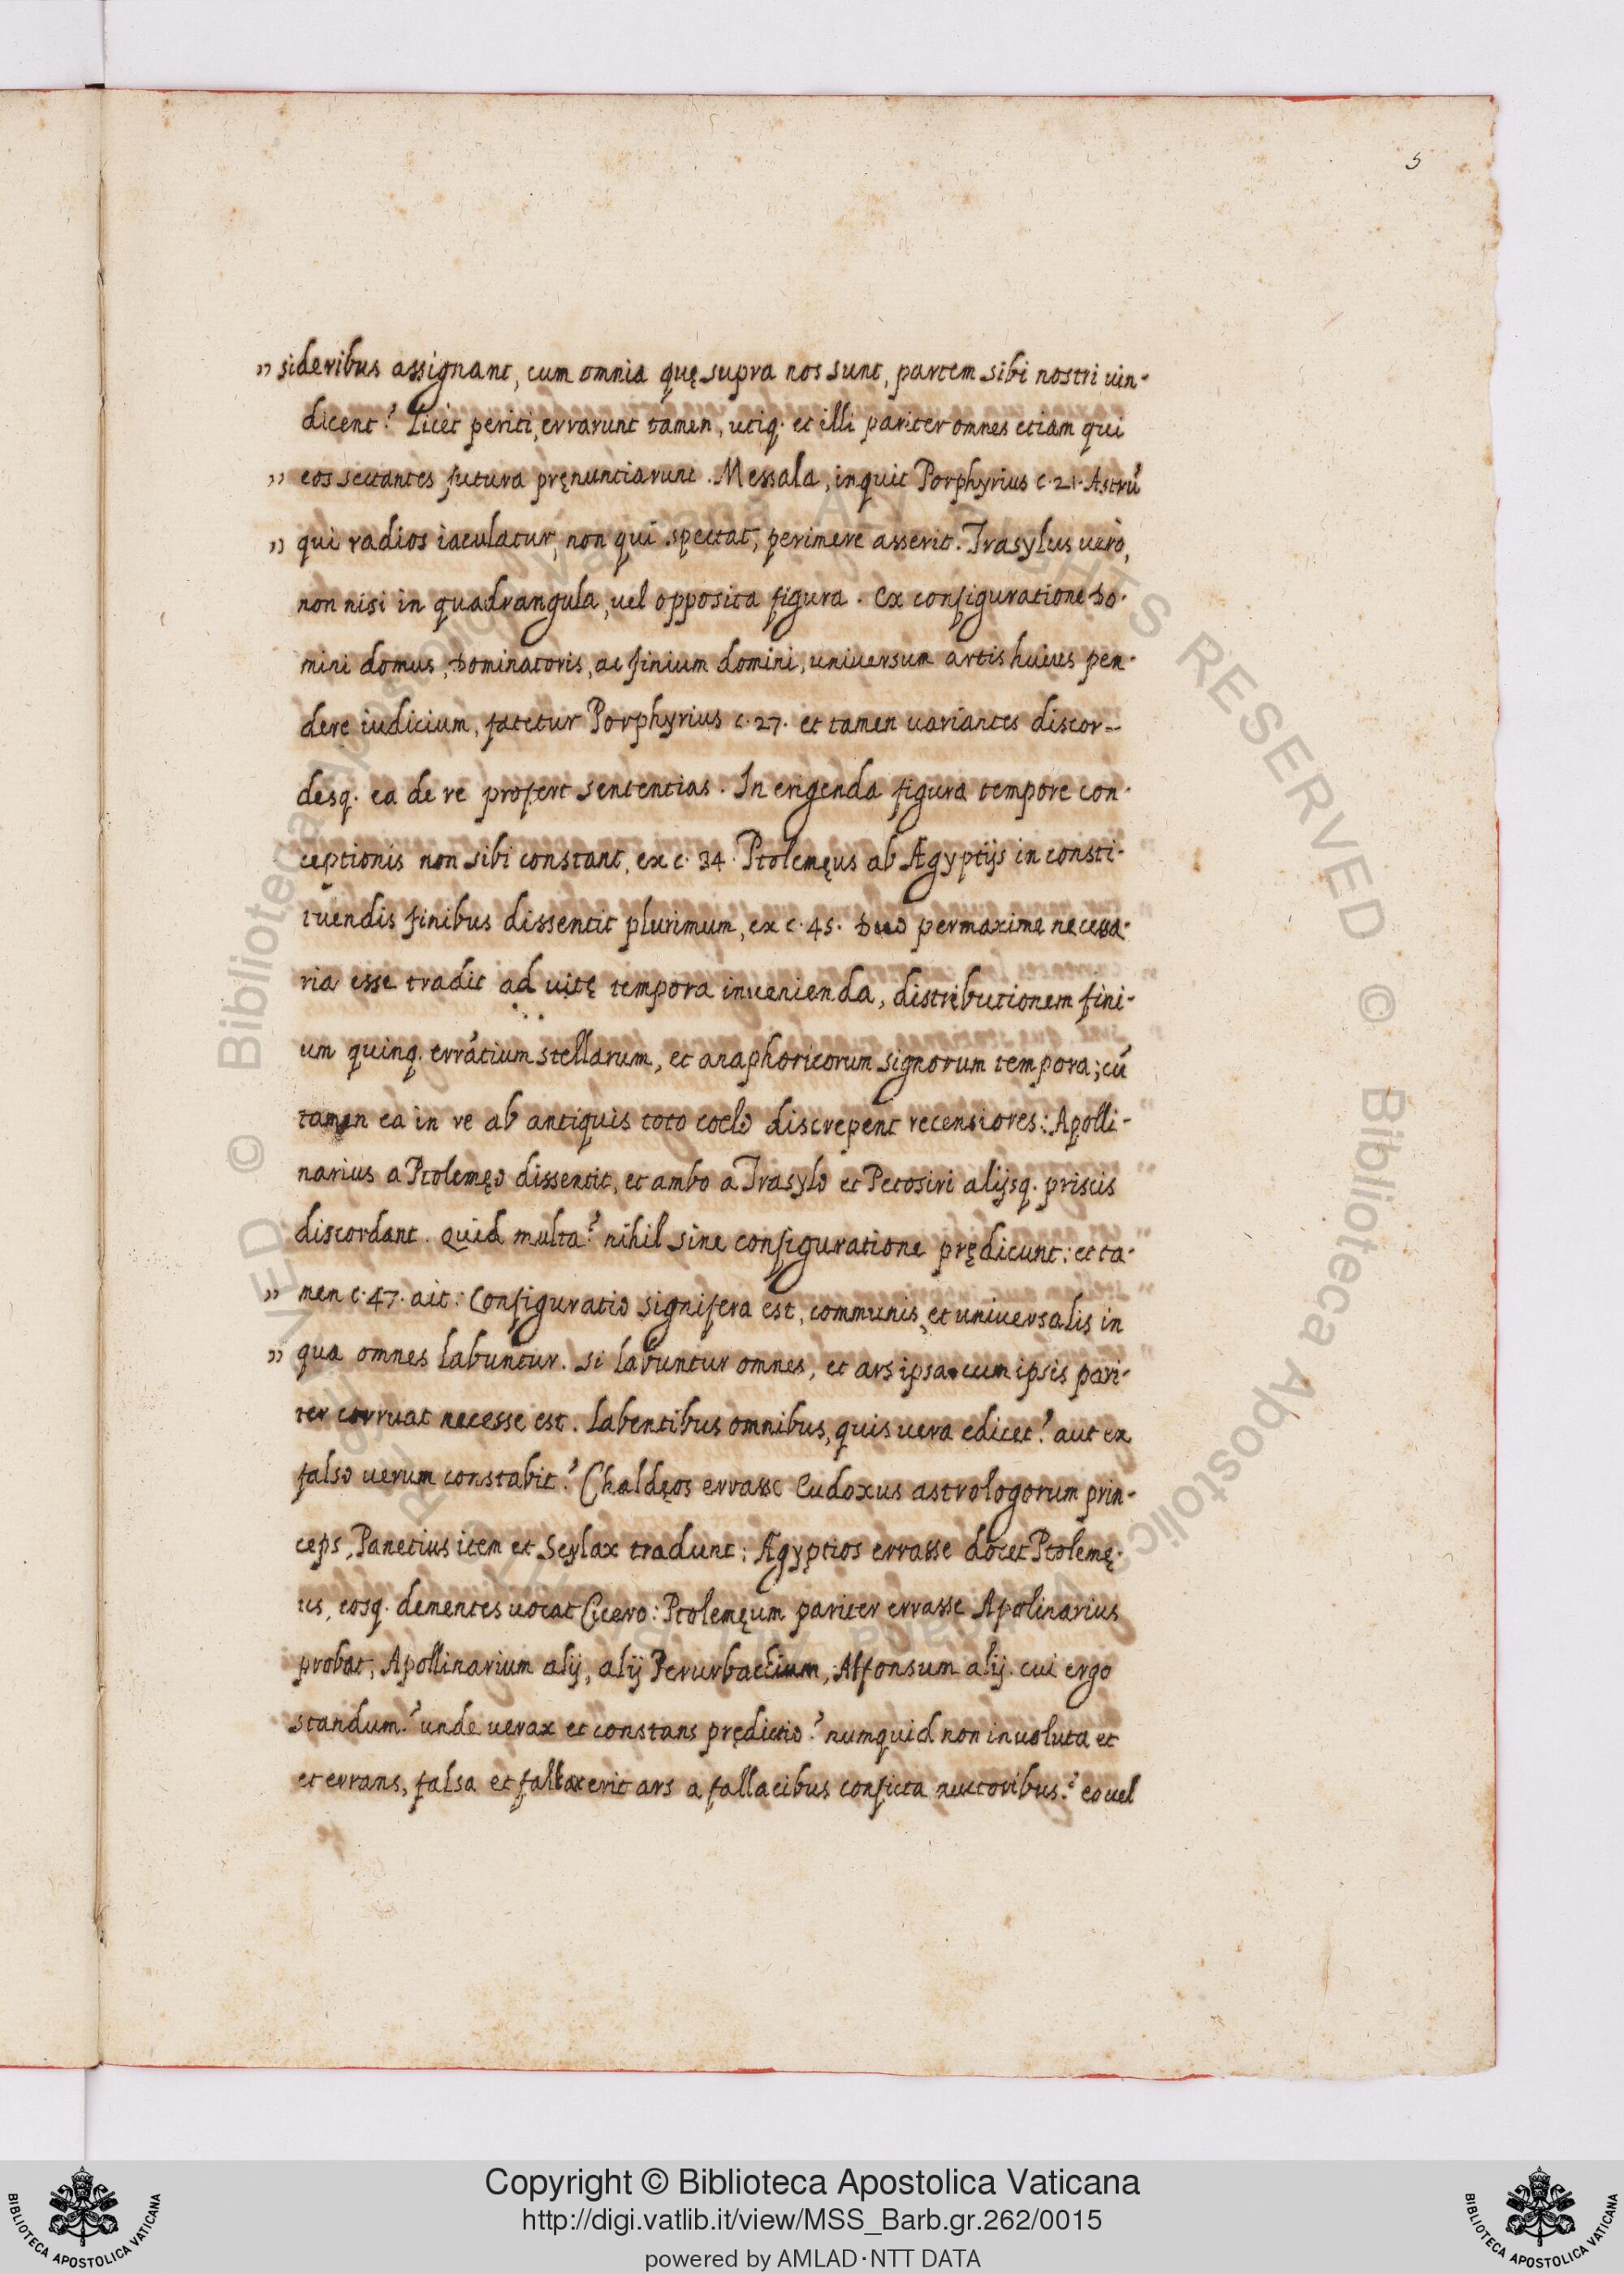 5
„ sideribus assignant, cum omnia quę supra nos sunt, partem sibi nostri uin-
dicent? Licet periti, errarunt tamen, utiq. et illi pariter omnes etiam qui
„ eos sectantes futura pręnuntiarunt. Messala, inquit Porphyrius c. 21. Astrū
„ qui radios iaculatur, non qui spectat, perimere asserit. Trasylus uerò,
non nisi in quadrangula, uel opposita figura. Ex configuratione Do-
mini domus, Dominatoris, ac finium domini, uniuersum artis huius pen-
dere iudicium, fatetur Porphyrius c. 27. et tamen uariantes discor-
desq. ea de re profert sententias. In erigenda figura tempore con-
ceptionis non sibi constant, ex c. 34. Ptolemęus ab Ægyptijs in consti-
tuendis finibus dissentit plurimum, ex c. 45. Duo permaxime necessa-
ria esse tradit ad uitę tempora inuenienda, distributionem fini-
um quinq. errātium stellarum, et anaphoricorum signorum tempora; cū
tamen ea in re ab antiquis toto coelo discrepent recensiores: Apolli-
narius a Ptolemęo dissentit, et ambo a Trasylo et Petosiri alijsq. priscis
discordant. Quid multa? nihil sine configuratione prędicunt: et ta-
„ men c. 47. ait: Configuratio signifera est, communis, et uniuersalis in
„ qua omnes labuntur. Si labuntur omnes, et ars ipsa cum ipsis pari-
ter corruat necesse est. Labentibus omnibus, quis uera edicet? aut ex
falso uerum constabit? Chaldęos errasse Eudoxus astrologorum prin-
ceps, Panetius item et Scylax tradunt: Ægyptios errasse docet Ptolemę-
us, eosq. dementes uocat Cicero: Ptolemęum pariter errasse Apolinarius
probat, Apollinarium alij, alij Perurbacium, Alfonsum alij. cui ergo
standum? unde uerax et constans prędictio? numquid non inuoluta et
et errans, falsa et fallax erit ars a fallacibus conficta auctoribus? eo uel
Copyright © Biblioteca Apostolica Vaticana
http://digi.vatlib.it/view/MSS_Barb.gr.262/0015
powered by AMLAD·NTT DATA
BIBLIOTECA APOSTOLICA VATICANA
BIBLIOTECA APOSTOLICA VATICANA